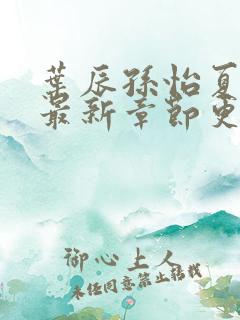 葉辰孫怡夏
最新章節更
御心上人
未经同意禁止转载